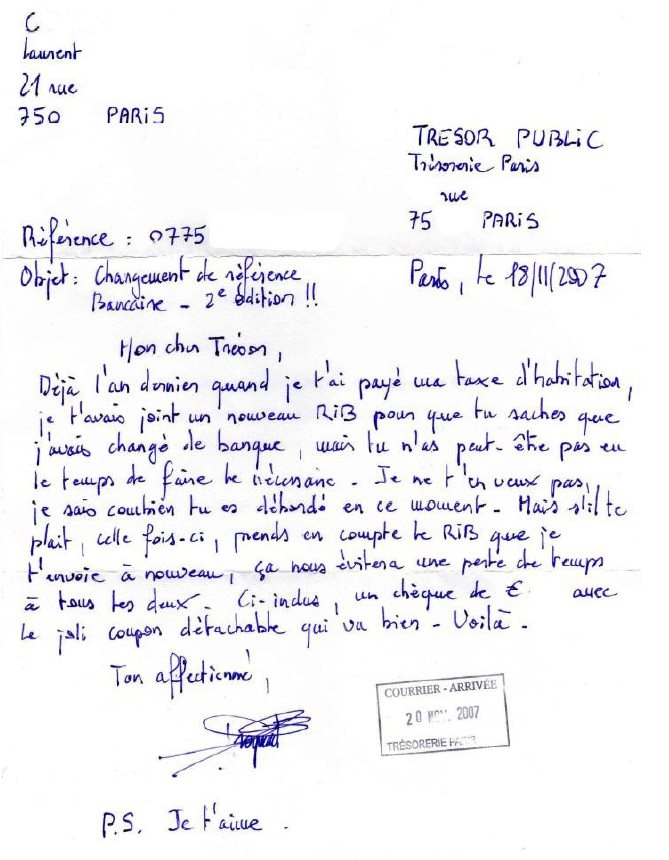 C
Laurent
21 rue
750 PARIS
TRESOR PUBLIC
Trésorerie Paris
rue
75 PARIS
Référence : 0775
Objet : Changement de référence
Bancaire - 2e édition !!
Paris, le 18/11/2007
Mon cher Trésor,
Déjà l'an dernier quand je t'ai payé ma taxe d'habitation,
je t'avais joint un nouveau RIB pour que tu saches que
j'avais changé de banque, mais tu n'as peut-être pas eu
le temps de faire le nécessaire - Je ne t'en veux pas,
je sais combien tu es débordé en ce moment - Mais s'il te
plait, cette fois-ci, prends en compte le RIB que je
t'envoie à nouveau, ça nous évitera une perte de temps
à tous les deux - Ci-inclus, un chèque de € avec
le joli coupon détachable qui va bien - Voilà -
Ton affectionné,
COURRIER - ARRIVÉE
20 NOV. 2007
TRÉSORERIE
P.S. Je t'aime .